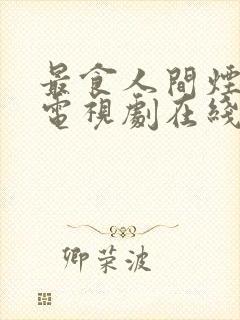 最食人間煙
電視劇在綫
卿荣波